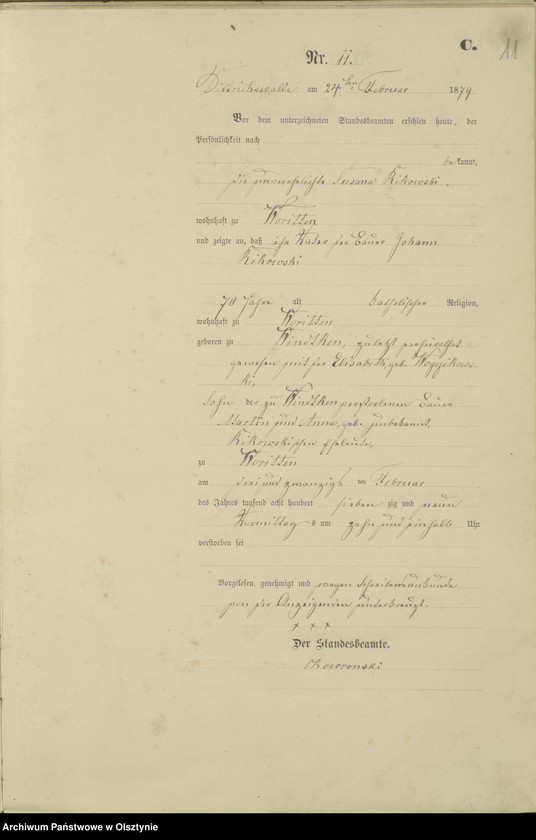 C.
11
Nr. 11.
Dietrichswalde am 24ten Februar 1879
Vor dem unterzeichneten Standesbeamten erschien heute, der
Persönlichkeit nach
bekannt,
die unverehelichte Susana Rikowski.
wohnhaft zu Woritten
und zeigte an, daß ihr Vater der Bauer Johann
Rikowski
70 Jahre alt katholischer Religion,
wohnhaft zu Woritten
geboren zu Windtken, zuletzt verheirathet
gewesen mit der Elisabeth, geb.
ki,
Sohn der zu Windtken verstorbenen Bauer
Martin und Anna, geb. unbekannt,
Rikowskischen Eheleute,
zu Woritten
am drei und zwanzigsten Februar
des Jahres tausend acht hundert siebenzig und neun
Vormittags um zehn und einhalb Uhr
verstorben sei
Vorgelesen, genehmigt und wegen Schreibensunkunde
von der Anzeigenden unterkreuzt.
x x x
Der Standesbeamte.
Archiwum Państwowe w Olsztynie